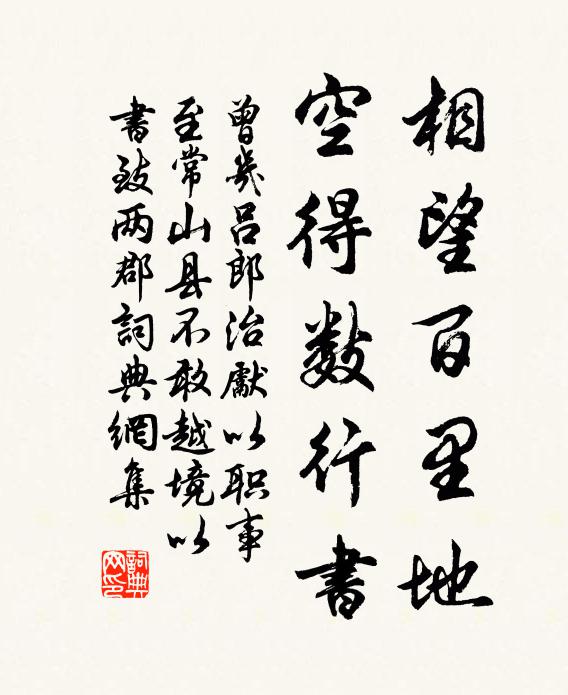 相望百里地
空得数行書
曾幾吕郎治獻以职事
至常山县不敢越境以
書致两郡詞典網集
詞典网印